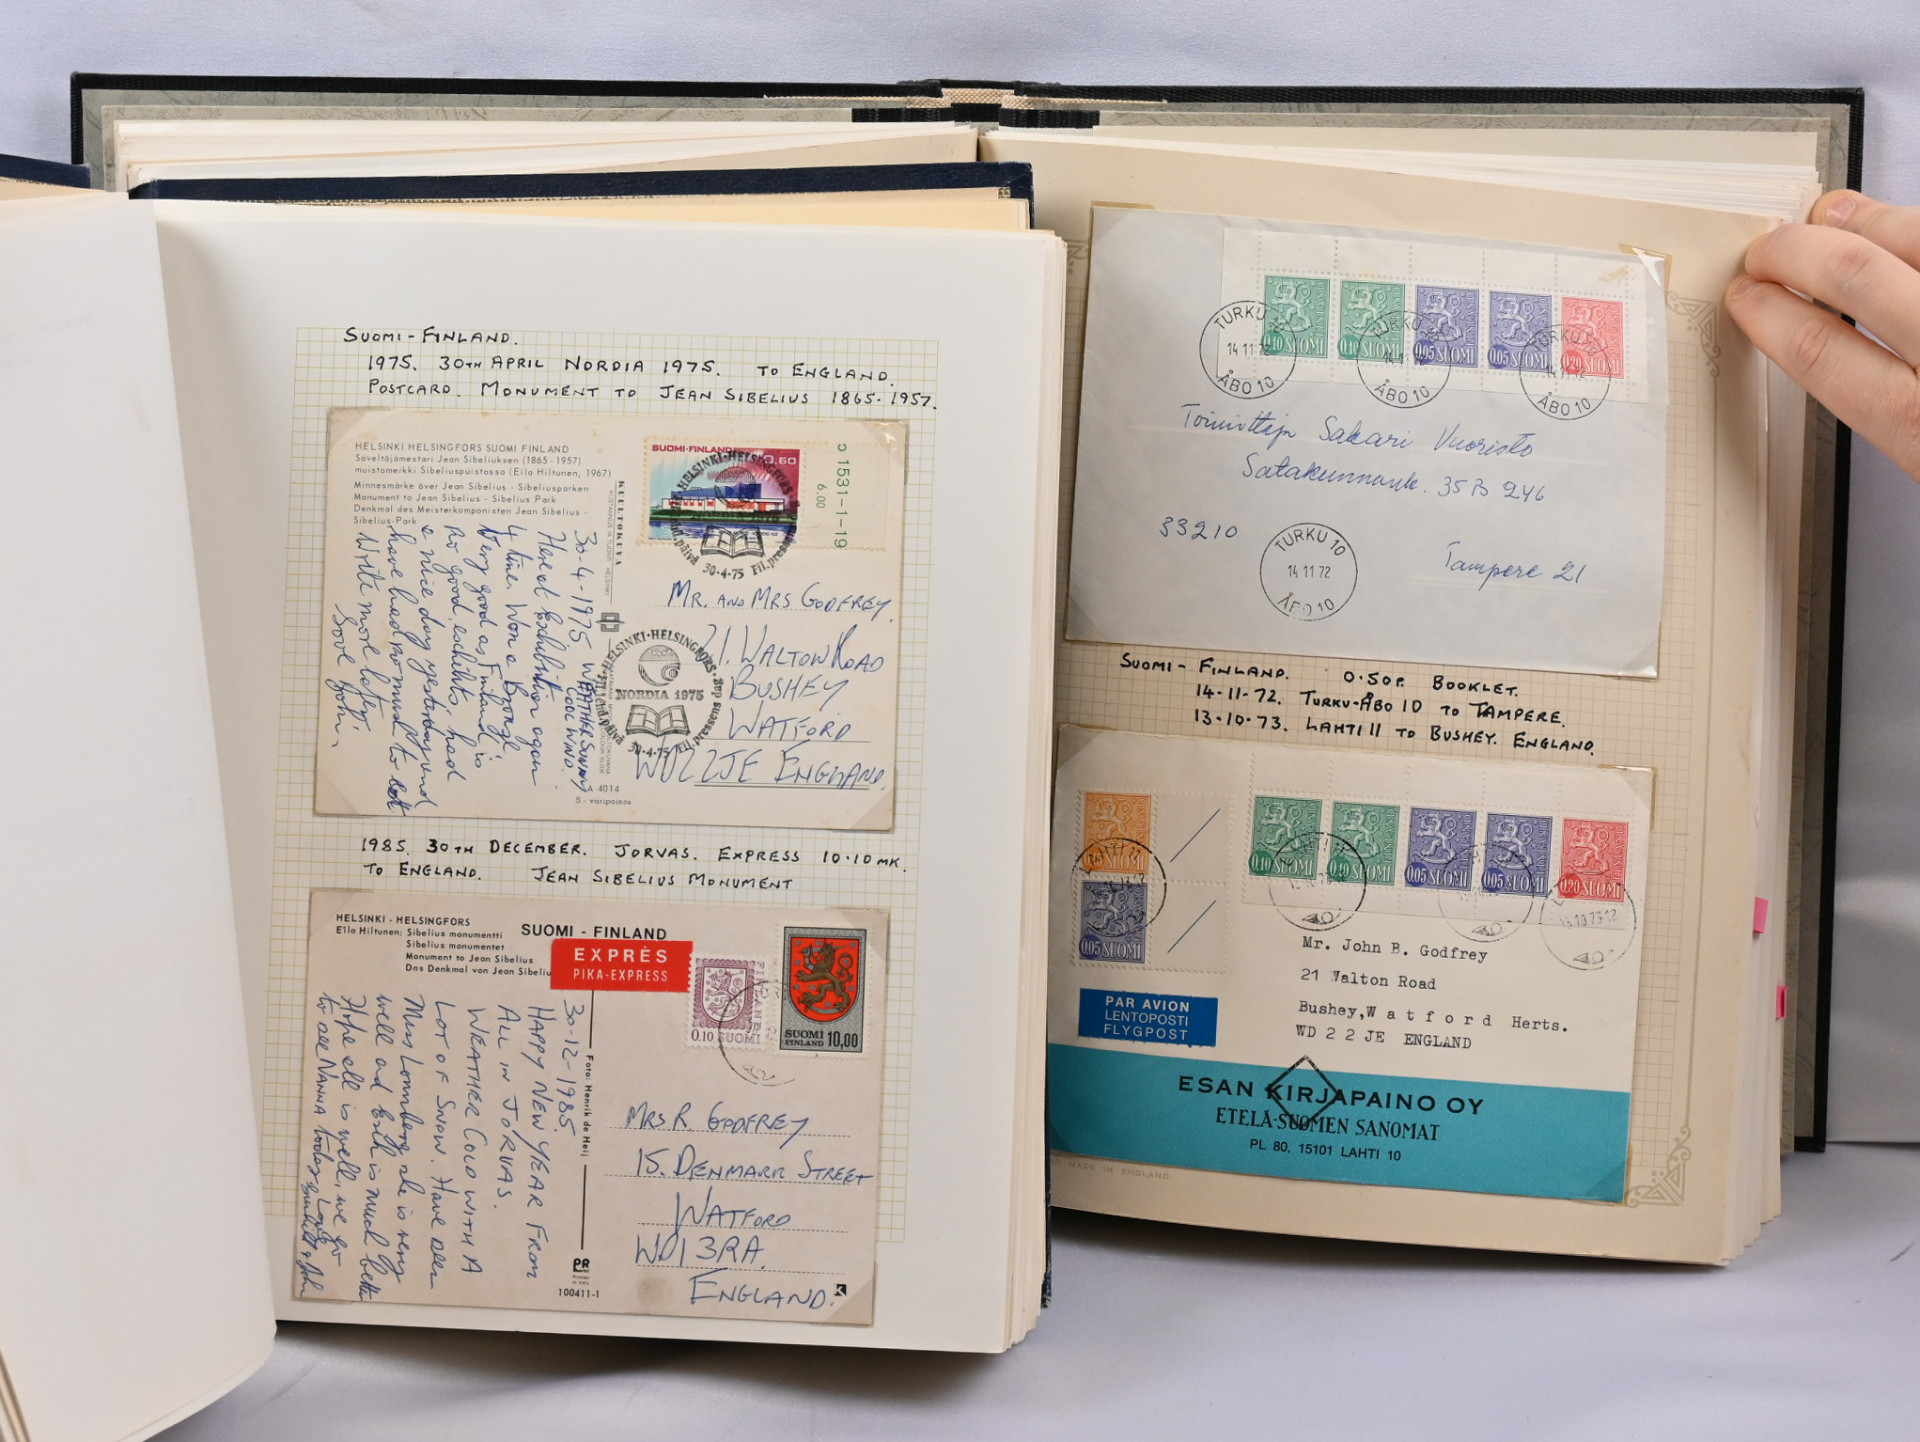 SUOMI-FINLAND.
1975. 30TH APRIL NORDIA 1975. TO ENGLAND.
POSTCARD. MONUMENT TO JEAN SIBELIUS 1865-1957.
HELSINKI HELSINGFORS SUOMI FINLAND
Säveltäjämestari Jean Sibeliuksen (1865-1957)
muistomerkki Sibeliuspuistossa (Eila Hiltunen, 1967)
Minnesmärke över Jean Sibelius - Sibeliusparken
Monument to Jean Sibelius - Sibelius Park
Denkmal des Meisterkomponisten Jean Sibelius -
Sibelius-Park
KULTAKUVA
SUOMI-FINLAND 0,60
1531-1-19
6.00
HELSINKI-HELSINGFORS
30-4-75
30-4-1975 WEATHER SUNNY
COOL WIND.
Here at Exhibition again
4 time. Won a Bronze
Very good as Finland is
so good exhibits, had
a nice day yesterday and
have had to
Write more later.
Love John,
MR. AND MRS GODFREY.
21. WALTON ROAD
BUSHEY
WATFORD
WD2 2JE ENGLAND.
HELSINKI-HELSINGFORS
NORDIA 1975
30-4-75
A 4014
5 - varipainos
1985. 30TH DECEMBER. JORVAS. EXPRESS 10.10MK.
TO ENGLAND. JEAN SIBELIUS MONUMENT
HELSINKI - HELSINGFORS
Eila Hiltunen: Sibelius monumentti
Sibelius monumentet
Monument to Jean Sibelius
Das Denkmal von Jean Sibeliu
SUOMI - FINLAND
EXPRÈS
PIKA-EXPRESS
0.10 SUOMI
FINLAND
SUOMI
FINLAND 10,00
30-12-1985.
HAPPY NEW YEAR FROM
ALL IN JORVAS.
WEATHER COLD WITH A
LOT OF SNOW. Have seen
Miss Lomberg she is very
well and is much better
Hope all is well, we go
to see NANNA today. Love
John
Foto: Henrik de Heij
MRS R GODFREY
15. DENMARK STREET
WATFORD
WD1 3RA.
ENGLAND.
PR
100411-1
K
TURKU 10
14 11 72
ÅBO 10
TURKU
ÅBO 10
TURKU
ÅBO 10
0.10 SUOMI
0.10 SUOMI
0.05 SUOMI
0.05 SUOMI
0.20 SUOMI
Toimittaja Sakari Vuoristo
Satakunnank. 35 B 246
33210
Tampere 21
TURKU 10
14 11 72
ÅBO 10
SUOMI - FINLAND. 0.50P. BOOKLET.
14-11-72. TURKU-ÅBO 10 TO TAMPERE.
13-10-73. LAHTI 11 TO BUSHEY. ENGLAND.
SUOMI
0.05 SUOMI
0.10 SUOMI
0.10 SUOMI
0.05 SUOMI
0.05 SUOMI
0.20 SUOMI
13.10.73.12
Mr. John B. Godfrey
21 Walton Road
Bushey, W a t f o r d Herts.
WD 2 2 JE ENGLAND
PAR AVION
LENTOPOSTI
FLYGPOST
ESAN KIRJAPAINO OY
ETELÄ-SUOMEN SANOMAT
PL 80, 15101 LAHTI 10
MADE IN ENGLAND.